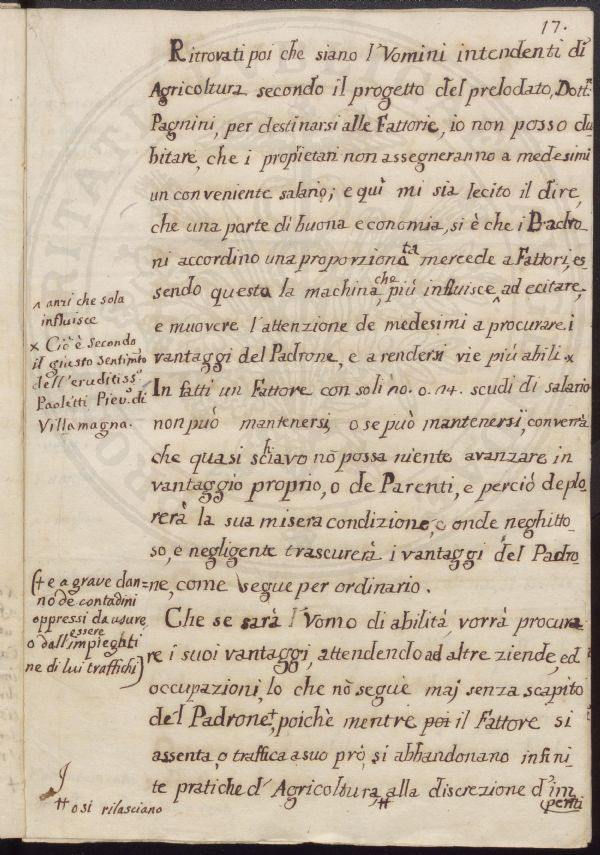 17.
Ritrovati poi che siano l'Vomini intendenti di
Agricoltura secondo il progetto del prelodato, Dott.re
Pagnini, per destinarsi alle Fattorie, io non posso du
bitare, che i proprietari non assegneranno a medesimi
un conveniente salario; e quì mi sia lecito il dire,
che una parte di buona economia, si è che i Padro
ni accordino una proporzionata mercede a Fattori, es
sendo questa la machina, che più influisce ^ ad ecitare,
e muovere l'attenzione de medesimi a procurare i
vantaggi del Padrone, e a rendersi vie più abili x
In fatti un Fattore con soli no. o. 14. scudi di salario
non può mantenersi, o se può mantenersi, converrà
che quasi schiavo nõ possa niente avanzare in
vantaggio proprio, o de Parenti, e perciò deplo
rerà la sua misera condizione, onde neghitto
so, e negligente trascurerà i vantaggi del Padro
ne, come segue per ordinario.
Che se sarà l'Vomo di abilità, vorrà procura
re i suoi vantaggi, attendendo ad altre ziende, ed
occupazioni, lo che nõ segue maj senza scapito
del Padrone +, poichè mentre poi il Fattore si
assenta, o traffica a suo prò, si abbandonano infini
te pratiche d'Agricoltura, ++ alla discrezione d'im
periti
^ anzi che sola
influisce
x Ciò è secondo
il giusto sentimto
dell'eruditisso
Paoletti Pievo di
Villamagna.
(+ e a grave dan=
no de contadini
oppressi da usure,
o dall'essere impiegati
ne di lui traffichi)
++ o si rilasciano